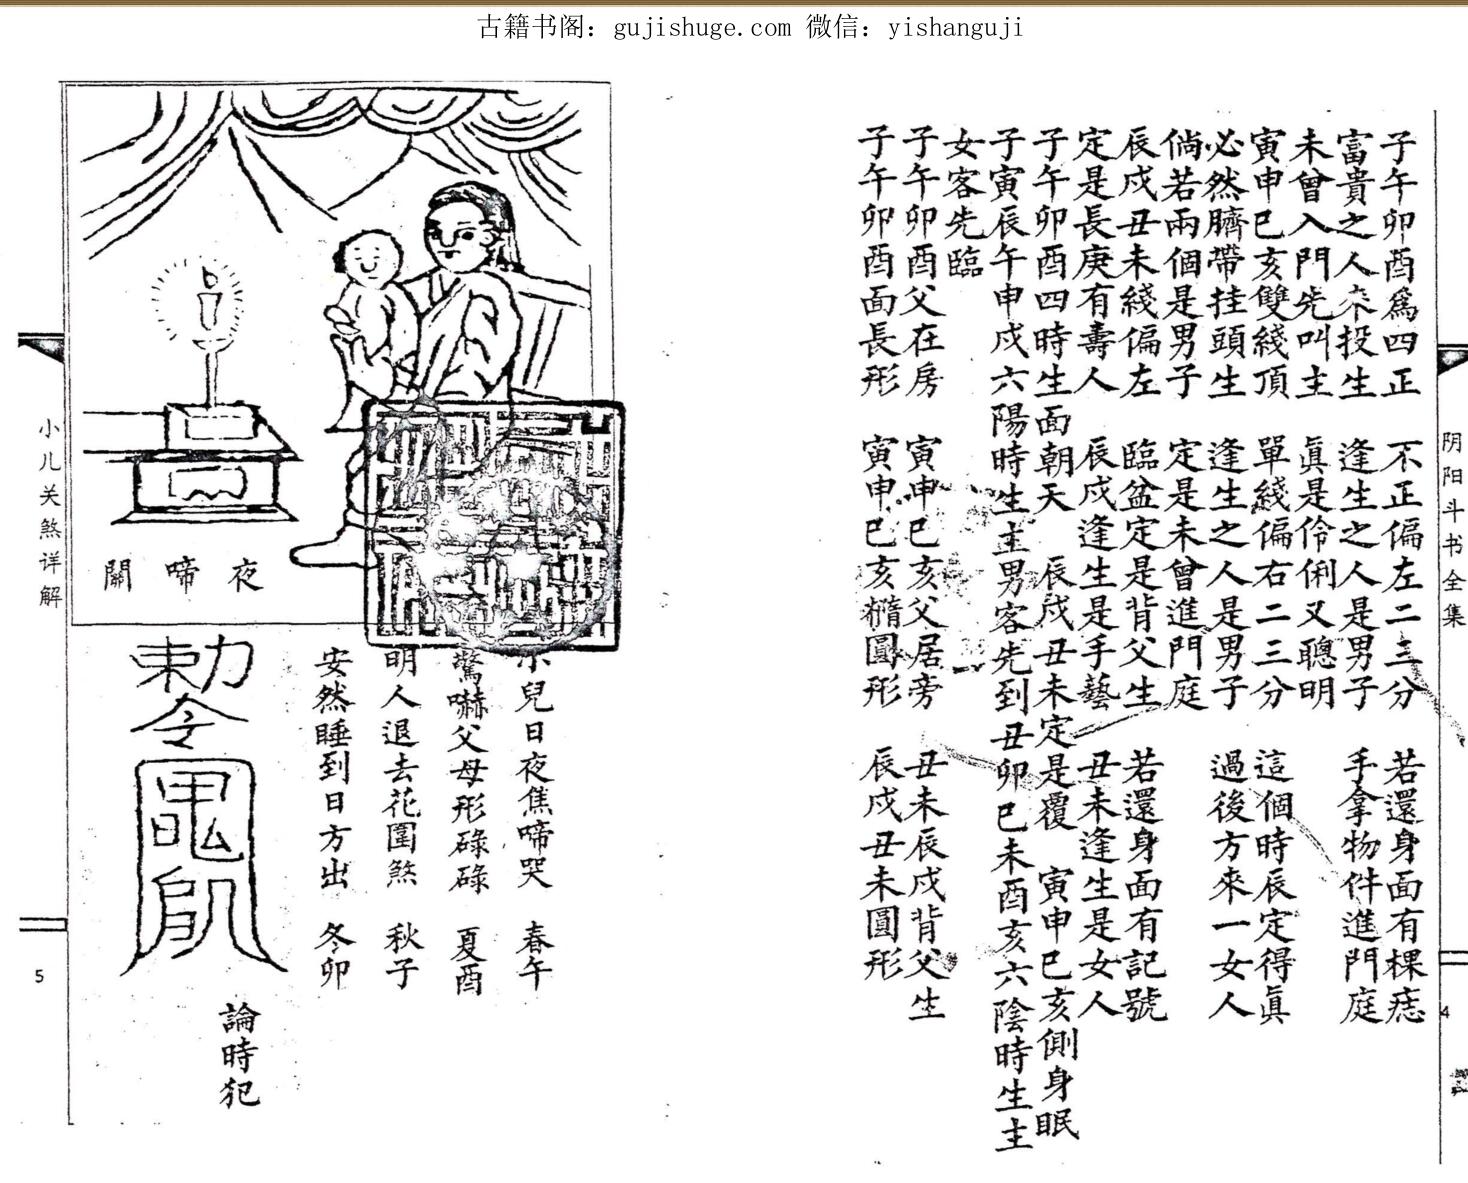 古籍书阁：gujishuge.com 微信：yishanguji
阴阳斗书全集
4
子午卯酉爲四正　不正偏左二三分　若還身面有棵痣
富貴之人來投生　逢生之人是男子　手拿物件進門庭
未曾入門先叫主　眞是伶俐又聰明
寅申巳亥雙綫頂　單綫偏右二三分　這個時辰定得眞
必然臍帶挂頭生　逢生之人是男子　過後方來一女人
倘若兩個是男子　定是未曾進門庭
辰戍丑未綫偏左　臨盆定是背父生　若還身面有記號
定是長庚有壽人　辰戍逢生是手藝　丑未逢生是女人
子午卯酉四時生面朝天　辰戍丑未定是覆　寅申巳亥側身眠
子寅辰午申戍六陽時生主男客先到丑卯巳未酉亥六陰時生主
女客先臨
子午卯酉父在房　寅申巳亥父居旁　丑未辰戍背父生
子午卯酉面長形　寅申巳亥橢圓形　辰戍丑未圓形
夜啼關
小兒日夜焦啼哭　春午
驚嚇父母形碌碌　夏酉
明人退去花園煞　秋子
安然睡到日方出　冬卯
論時犯
勅令
小儿关煞详解
5